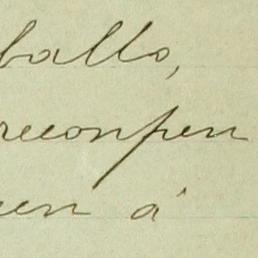 ballo,
reconpen
en á